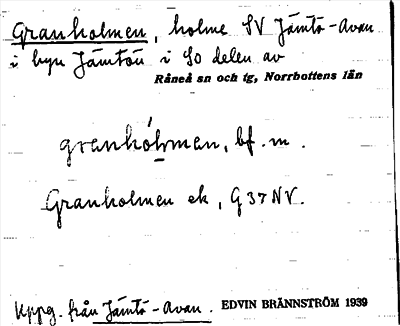 Granholmen, holme SV Jämtö-Avan
i byn Jämtön i SO delen av
Råneå sn och tg, Norrbottens län
granhólman, bf. m.
Granholmen ek, G 37 NV.
Uppg. från Jämtö-Avan. EDVIN BRÄNNSTRÖM 1939